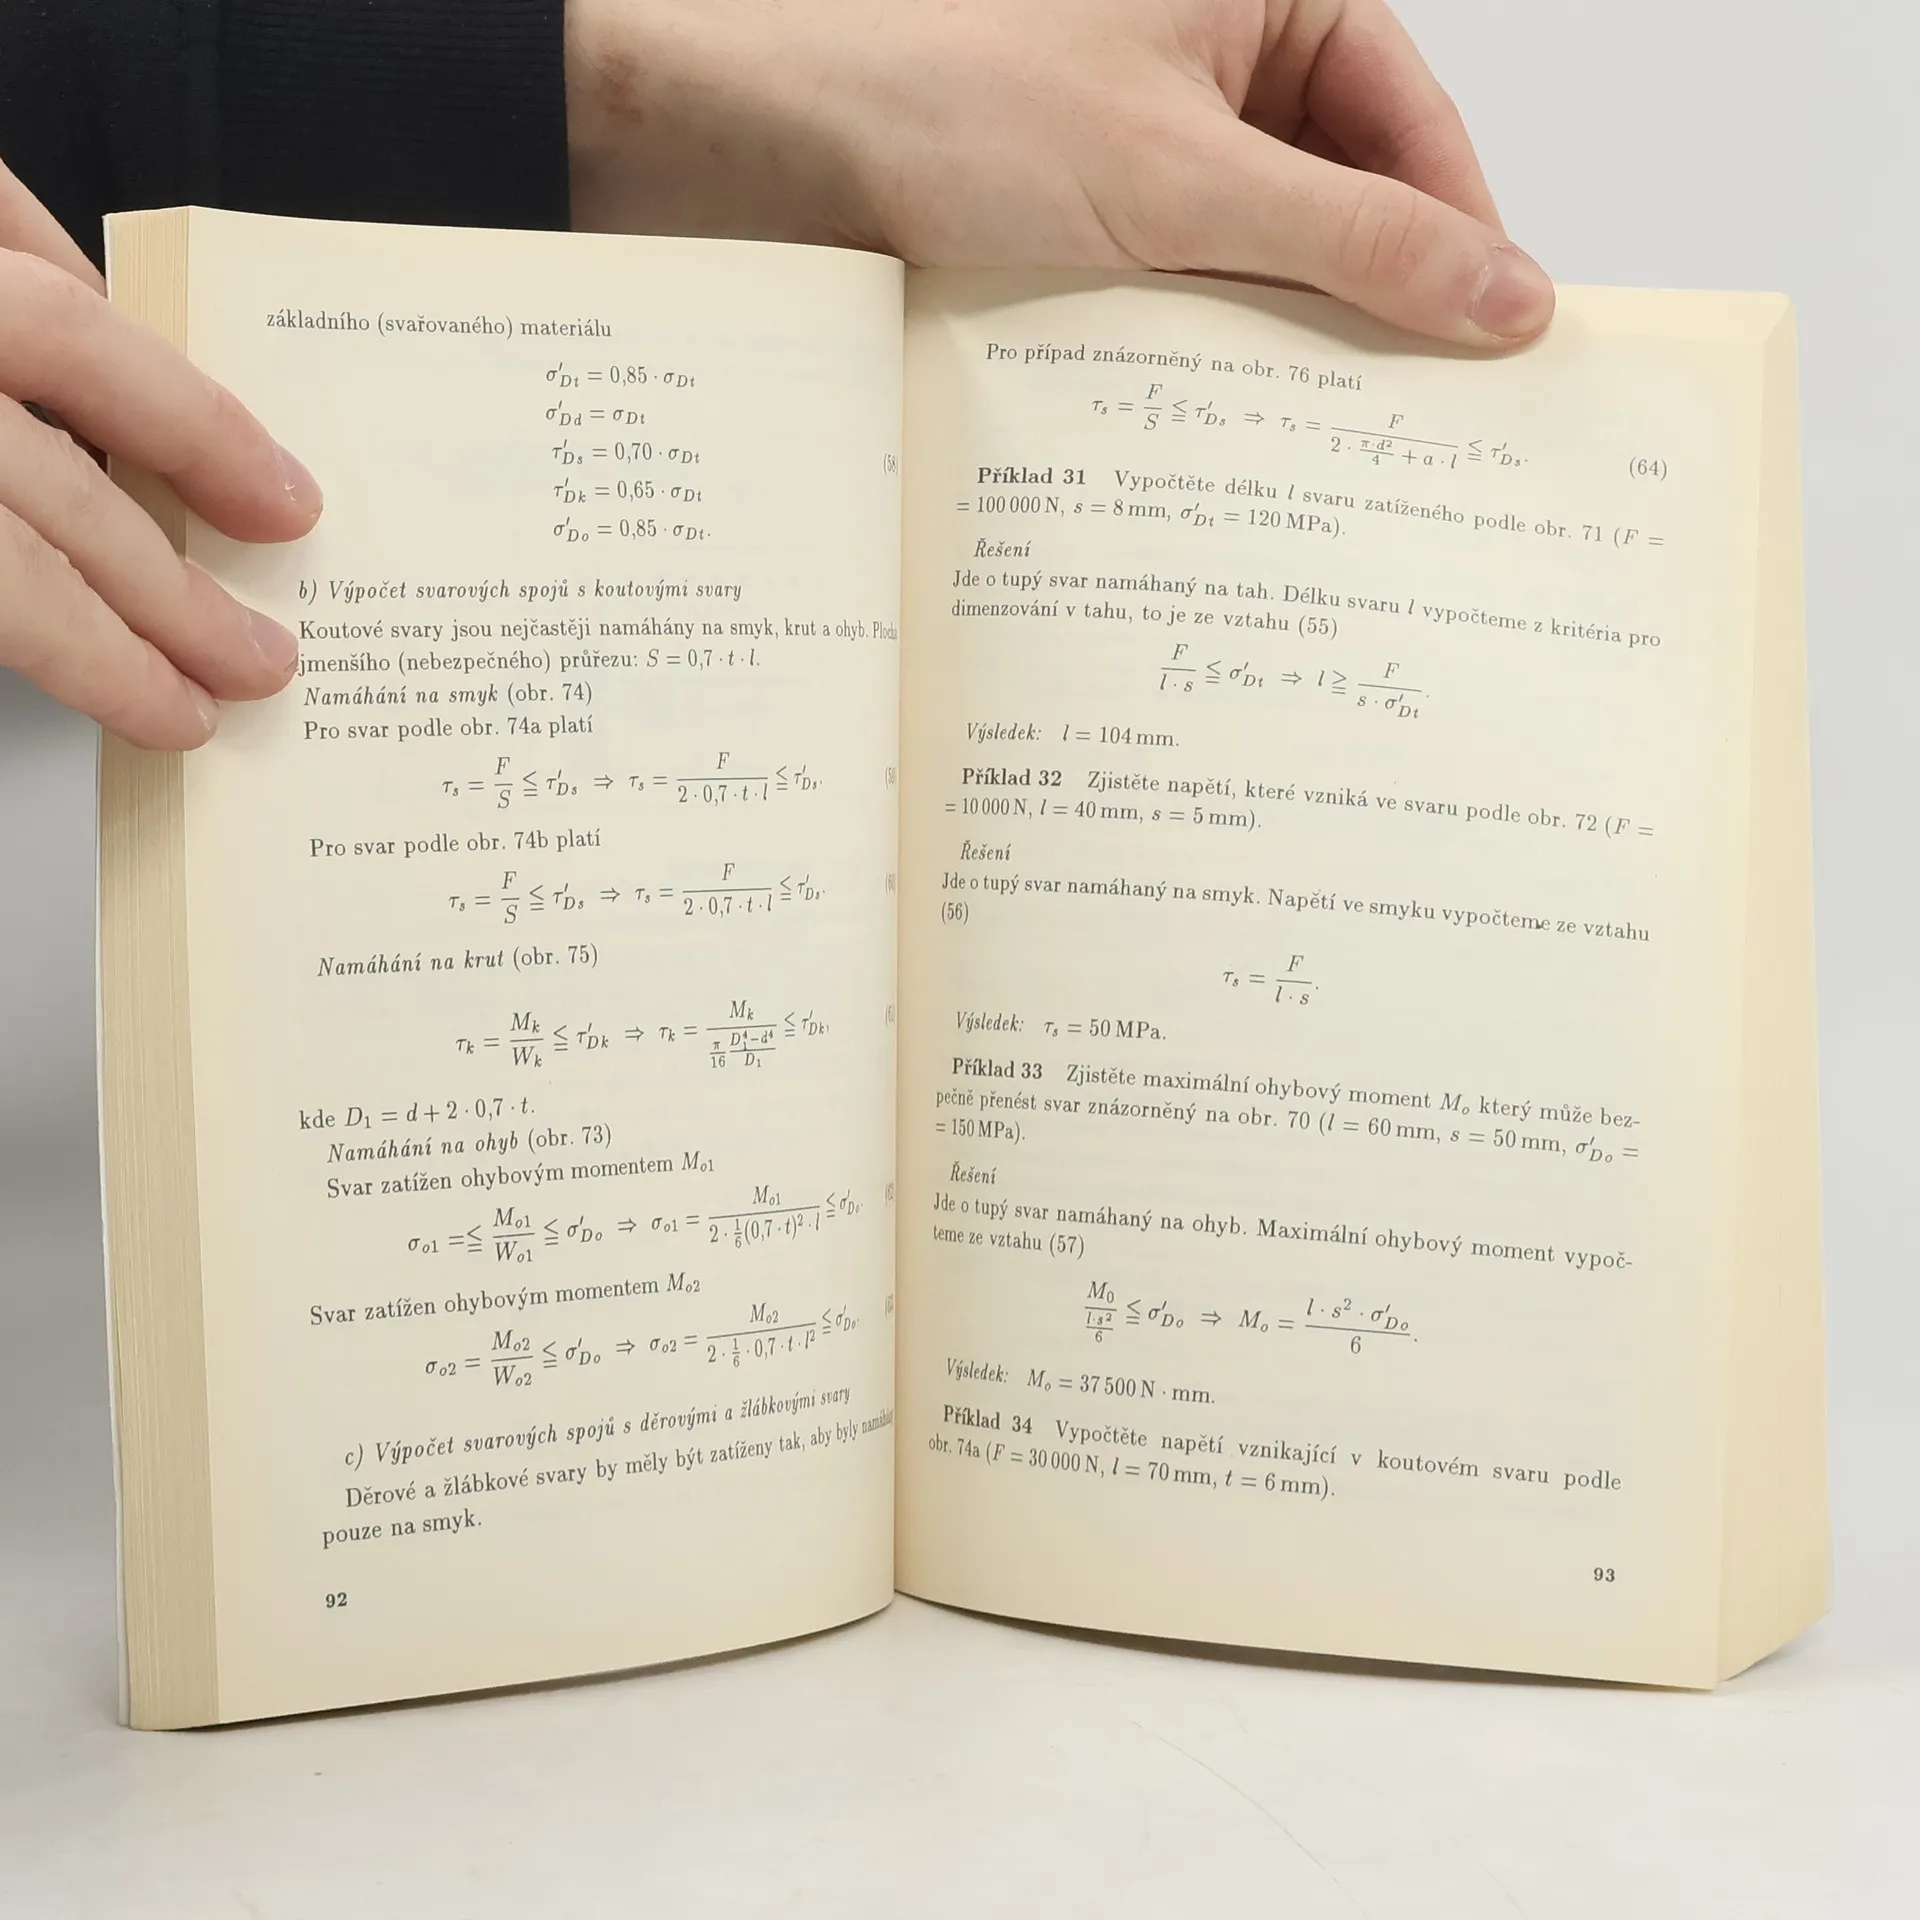 základního (svařovaného) materiálu
σ′Dt = 0,85 · σDt
σ′Dd = σDt
τ′Ds = 0,70 · σDt
(58)
τ′Dk = 0,65 · σDt
σ′Do = 0,85 · σDt.
b) Výpočet svarových spojů s koutovými svary
Koutové svary jsou nejčastěji namáhány na smyk, krut a ohyb. Plocha
jmenšího (nebezpečného) průřezu: S = 0,7 · t · l.
Namáhání na smyk (obr. 74)
Pro svar podle obr. 74a platí
τs = F/S ≦ τ′Ds ⇒ τs = F/(2 · 0,7 · t · l) ≦ τ′Ds.
Pro svar podle obr. 74b platí
τs = F/S ≦ τ′Ds ⇒ τs = F/(2 · 0,7 · t · l) ≦ τ′Ds.
Namáhání na krut (obr. 75)
τk = Mk/Wk ≦ τ′Dk ⇒ τk = Mk/(π/16 (D1⁴−d⁴)/D1) ≦ τ′Dk,
kde D1 = d + 2 · 0,7 · t.
Namáhání na ohyb (obr. 73)
Svar zatížen ohybovým momentem Mo1
σo1 =≦ Mo1/Wo1 ≦ σ′Do ⇒ σo1 = Mo1/(2 · 1/6 (0,7 · t)² · l) ≦ σ′Do.
Svar zatížen ohybovým momentem Mo2
σo2 = Mo2/Wo2 ≦ σ′Do ⇒ σo2 = Mo2/(2 · 1/6 · 0,7 · t · l²) ≦ σ′Do.
c) Výpočet svarových spojů s děrovými a žlábkovými svary
Děrové a žlábkové svary by měly být zatíženy tak, aby byly
pouze na smyk.
92
Pro případ znázorněný na obr. 76 platí
τs = F/S ≦ τ′Ds ⇒ τs = F/(2 · π·d²/4 + a · l) ≦ τ′Ds.
(64)
Příklad 31 Vypočtěte délku l svaru zatíženého podle obr. 71 (F =
= 100 000 N, s = 8 mm, σ′Dt = 120 MPa).
Řešení
Jde o tupý svar namáhaný na tah. Délku svaru l vypočteme z kritéria pro
dimenzování v tahu, to je ze vztahu (55)
F/(l · s) ≦ σ′Dt ⇒ l ≧ F/(s · σ′Dt).
Výsledek: l = 104 mm.
Příklad 32 Zjistěte napětí, které vzniká ve svaru podle obr. 72 (F =
= 10 000 N, l = 40 mm, s = 5 mm).
Řešení
Jde o tupý svar namáhaný na smyk. Napětí ve smyku vypočteme ze vztahu
(56)
τs = F/(l · s).
Výsledek: τs = 50 MPa.
Příklad 33 Zjistěte maximální ohybový moment Mo který může bez-
pečně přenést svar znázorněný na obr. 70 (l = 60 mm, s = 50 mm, σ′Do =
= 150 MPa).
Řešení
Jde o tupý svar namáhaný na ohyb. Maximální ohybový moment vypoč-
teme ze vztahu (57)
M0/(l·s²/6) ≦ σ′Do ⇒ Mo = (l · s² · σ′Do)/6.
Výsledek: Mo = 37 500 N · mm.
Příklad 34 Vypočtěte napětí vznikající v koutovém svaru podle
obr. 74a (F = 30 000 N, l = 70 mm, t = 6 mm).
93